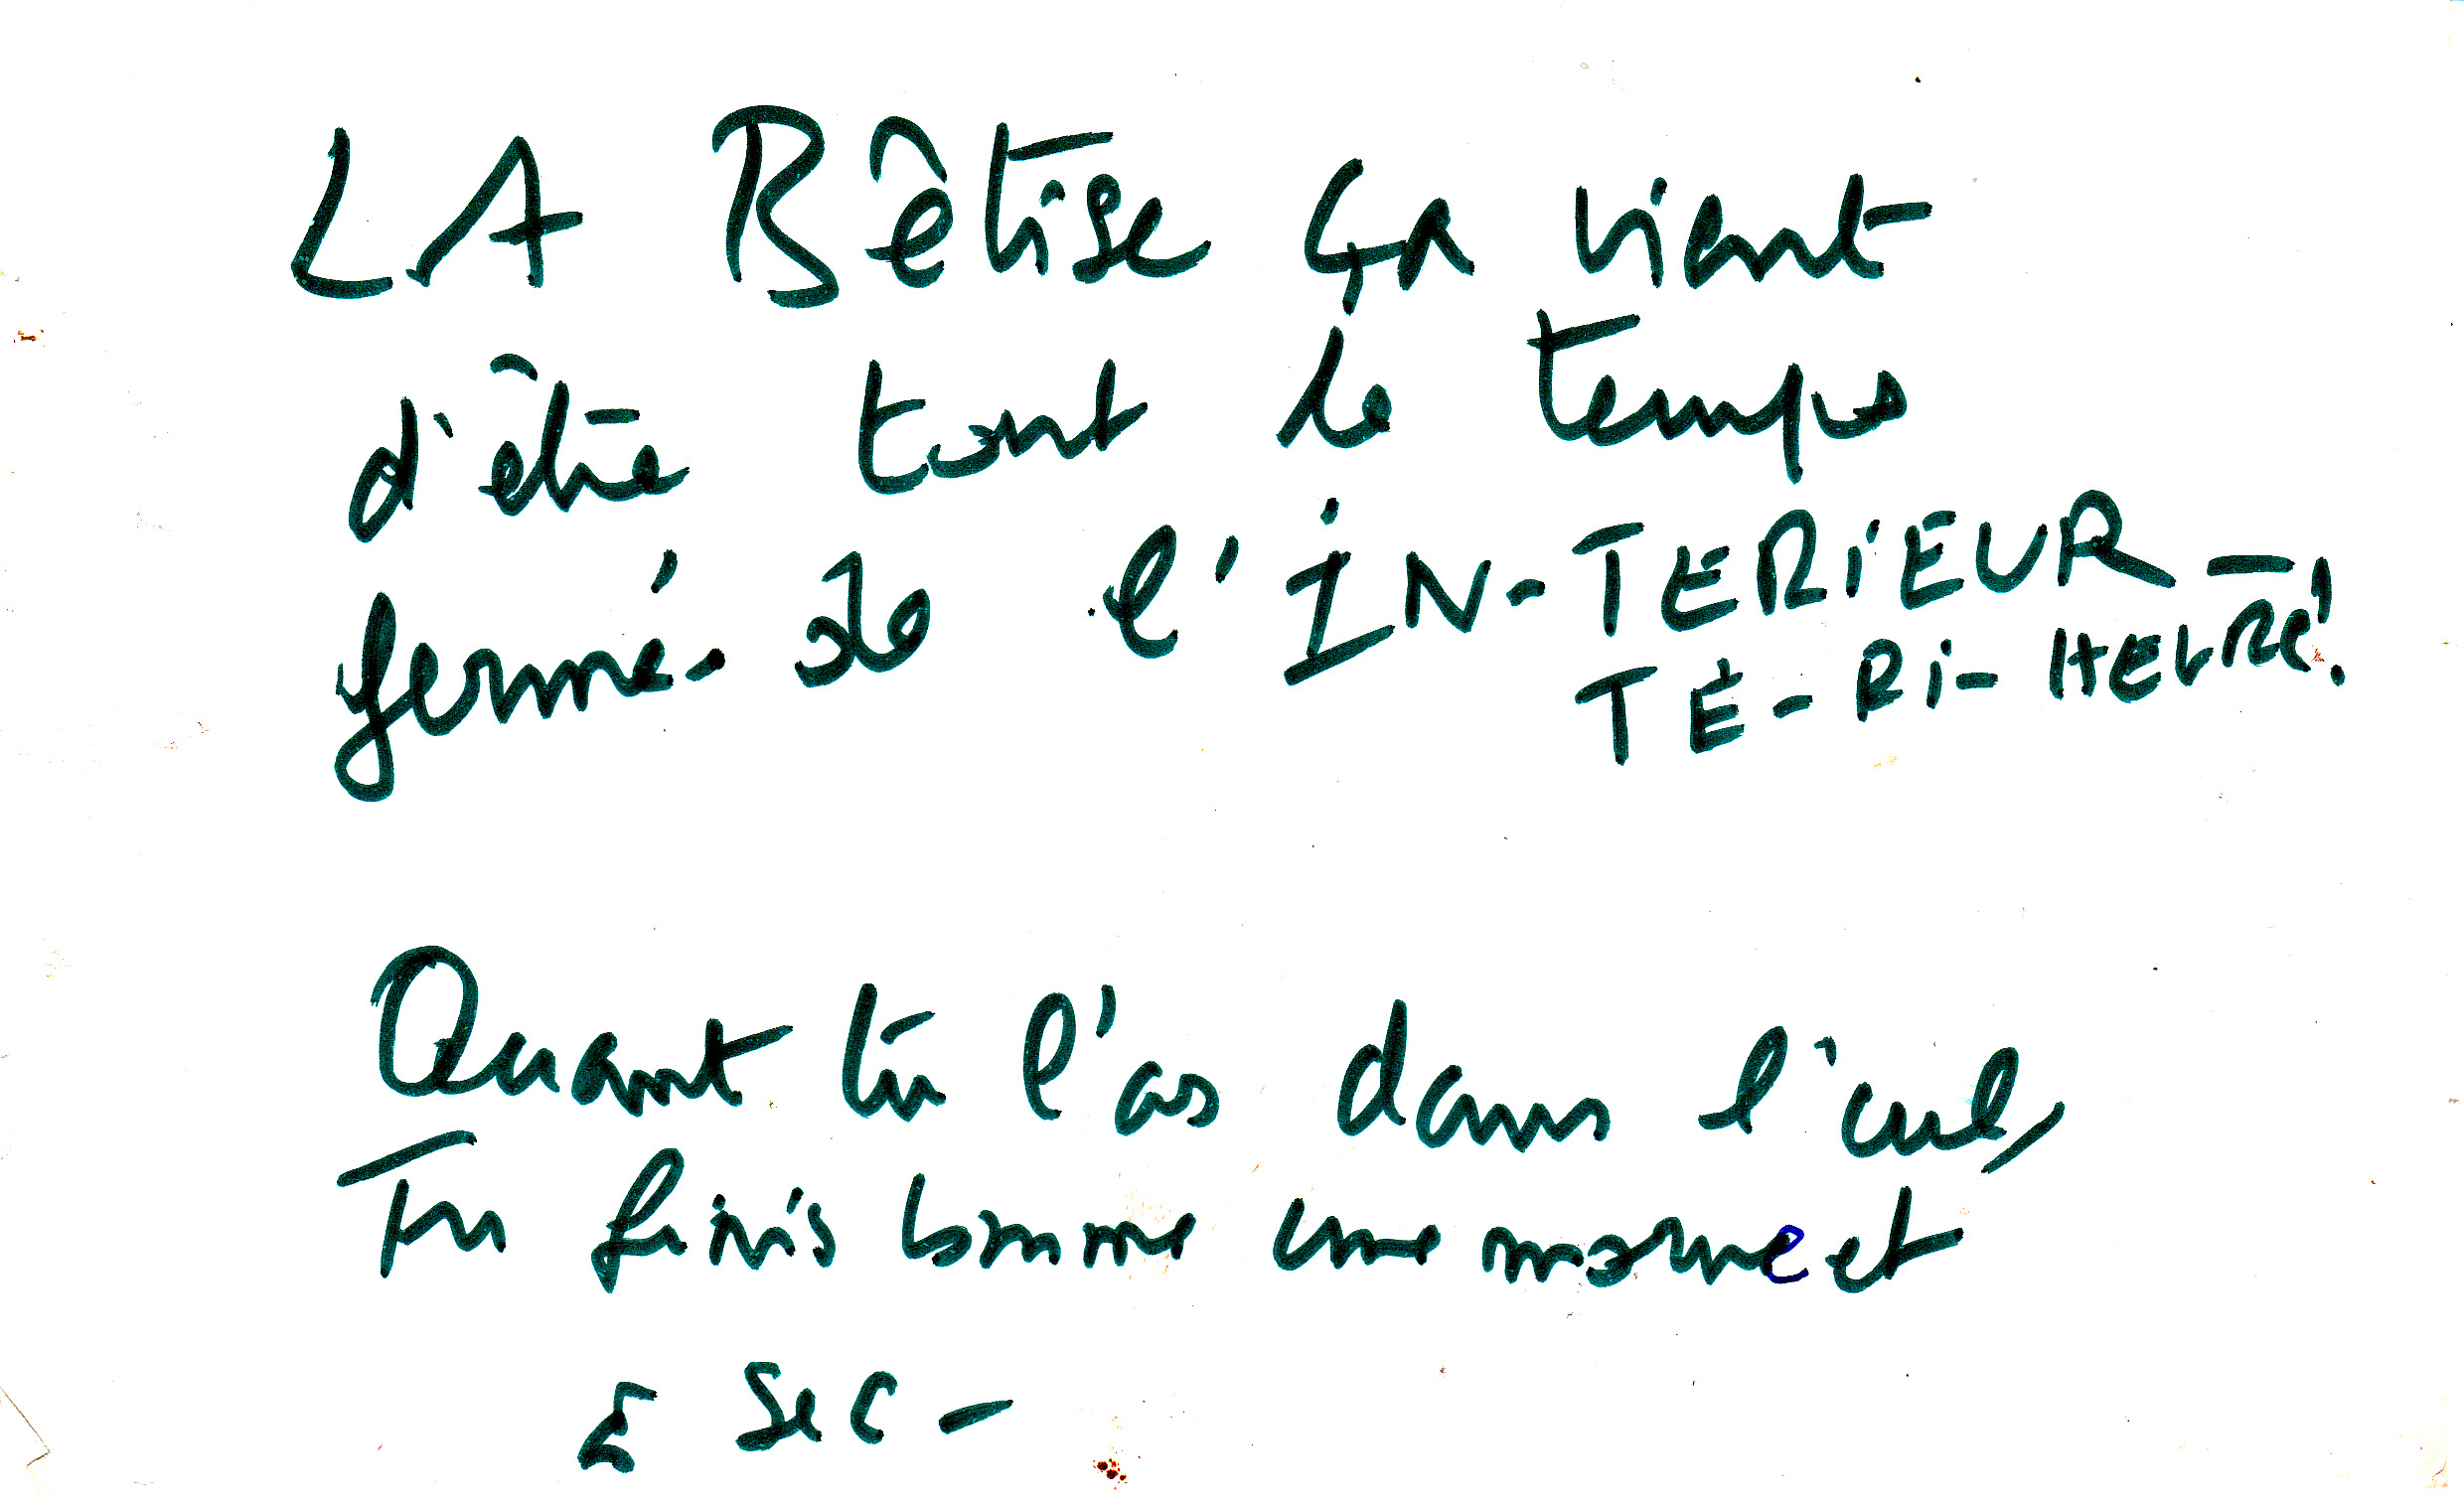 LA Bêtise ça vient
d'être tout le temps
fermé - de l'IN-TERiEUR -
TÉ-Ri-HEURE!
Quant tu l'as dans l'cul,
Tu finis comme une morue et
à sec -